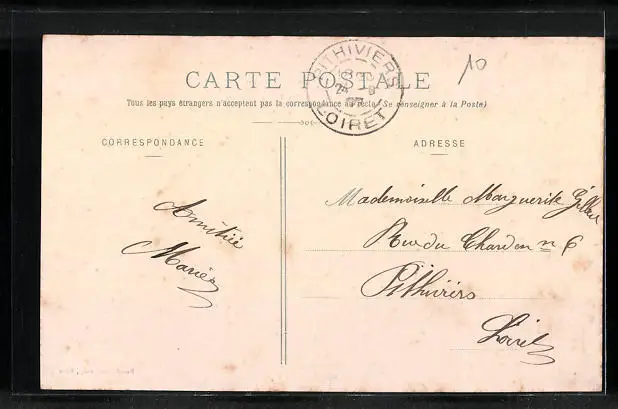 10
PITHIVIERS
LOIRET
CARTE POSTALE
Tous les pays étrangers n'acceptent pas la correspondance au recto (Se renseigner à la Poste)
CORRESPONDANCE
ADRESSE
Amitiée
Maria
Mademoiselle Marguerite
Rue du Chardon n 6
Pithiviers
Loiret